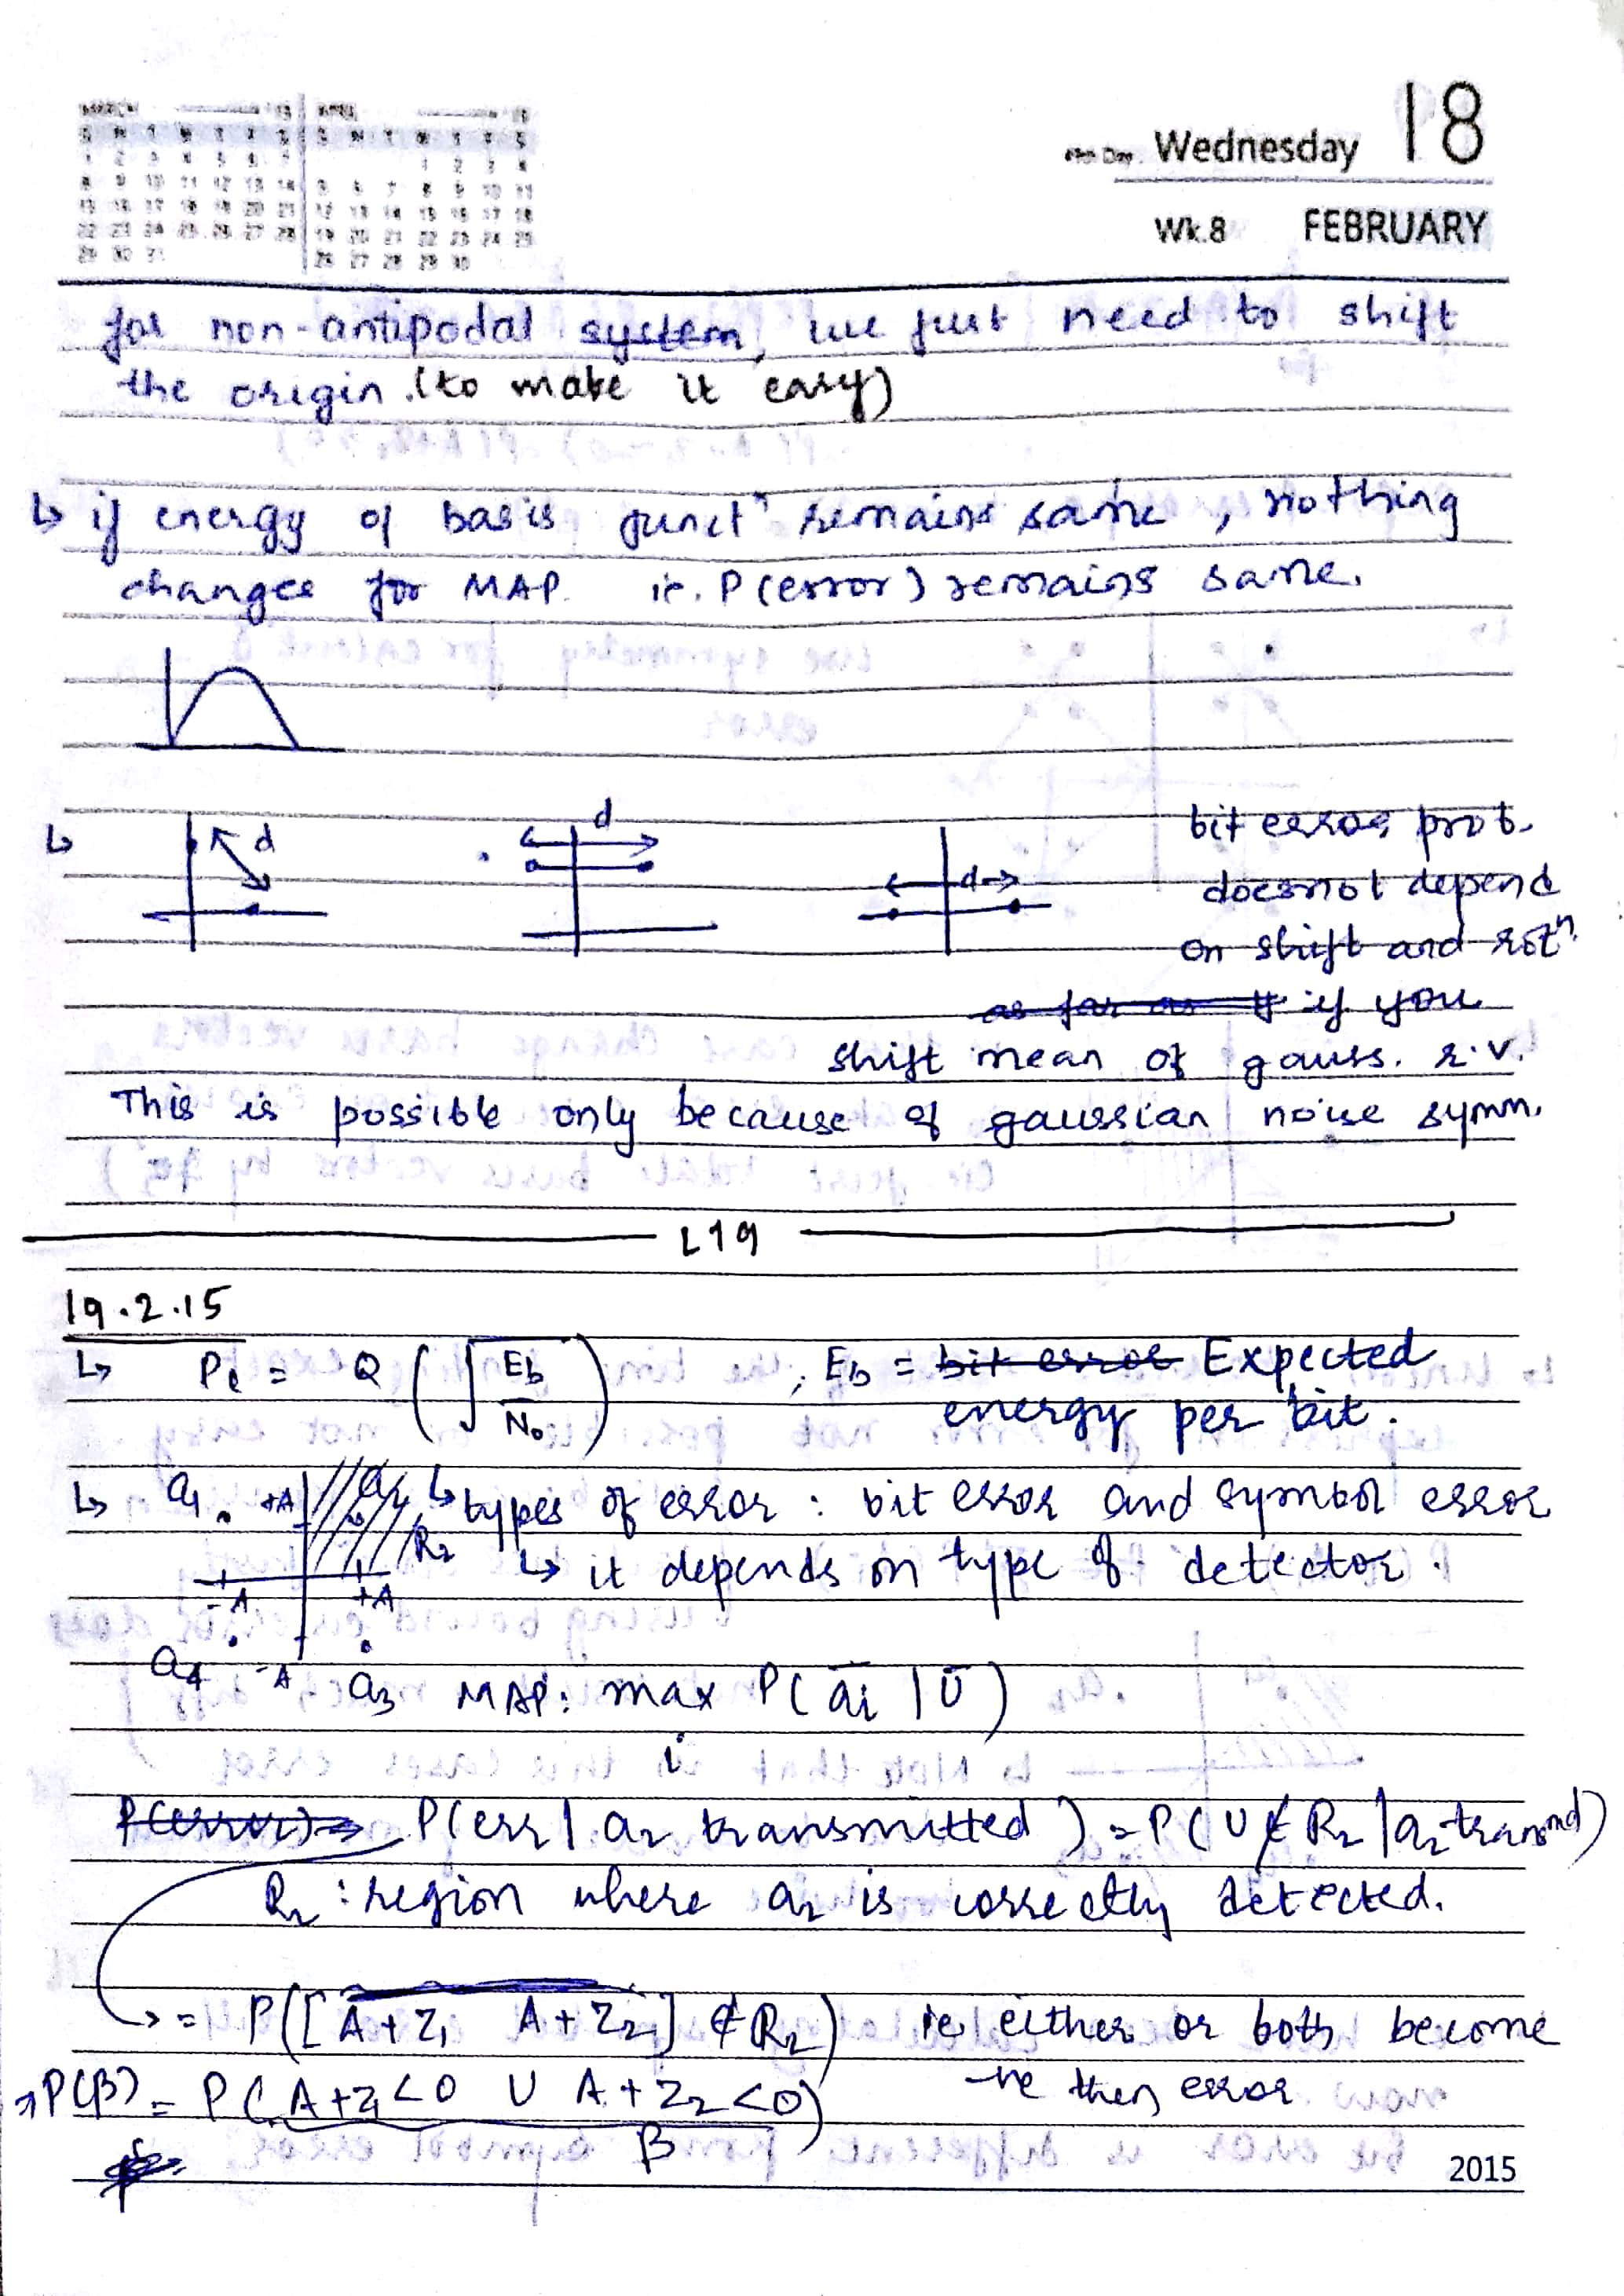 Wednesday 18
Wk.8 FEBRUARY
for non-antipodal system, we just need to shift
the origin. (to make it easy)
↳ if energy of basis functⁿ remains same, nothing
changes for MAP. ie. P(error) remains same.
↳ d d d
bit error prob.
doesnot depend
on shift and rotⁿ.
as far as if if you
shift mean of gauss. r.v.
This is possible only because of gaussian noise symm.
L19
19.2.15
↳ Pe = Q(√(Eb/N₀)) ; Eb = bit error Expected
energy per bit.
↳ a₁ +A a₂ ↳ types of error : bit error and symbol error
R₂ ↳ it depends on type of detector.
-A +A
a₄ -A a₃ MAP: max P(āi | ū)
i
P(error) ⇒ P(err | a₂ transmitted) = P(U ∉ R₂ | a₂ transmd)
R₂ : region where a₂ is correctly detected.
→ = P([A+Z₁ A+Z₂] ∉ R₂) ie either or both become
-ve then error.
→ P(β) = P(A+Z₁<0 ∪ A+Z₂<0)
β
2015